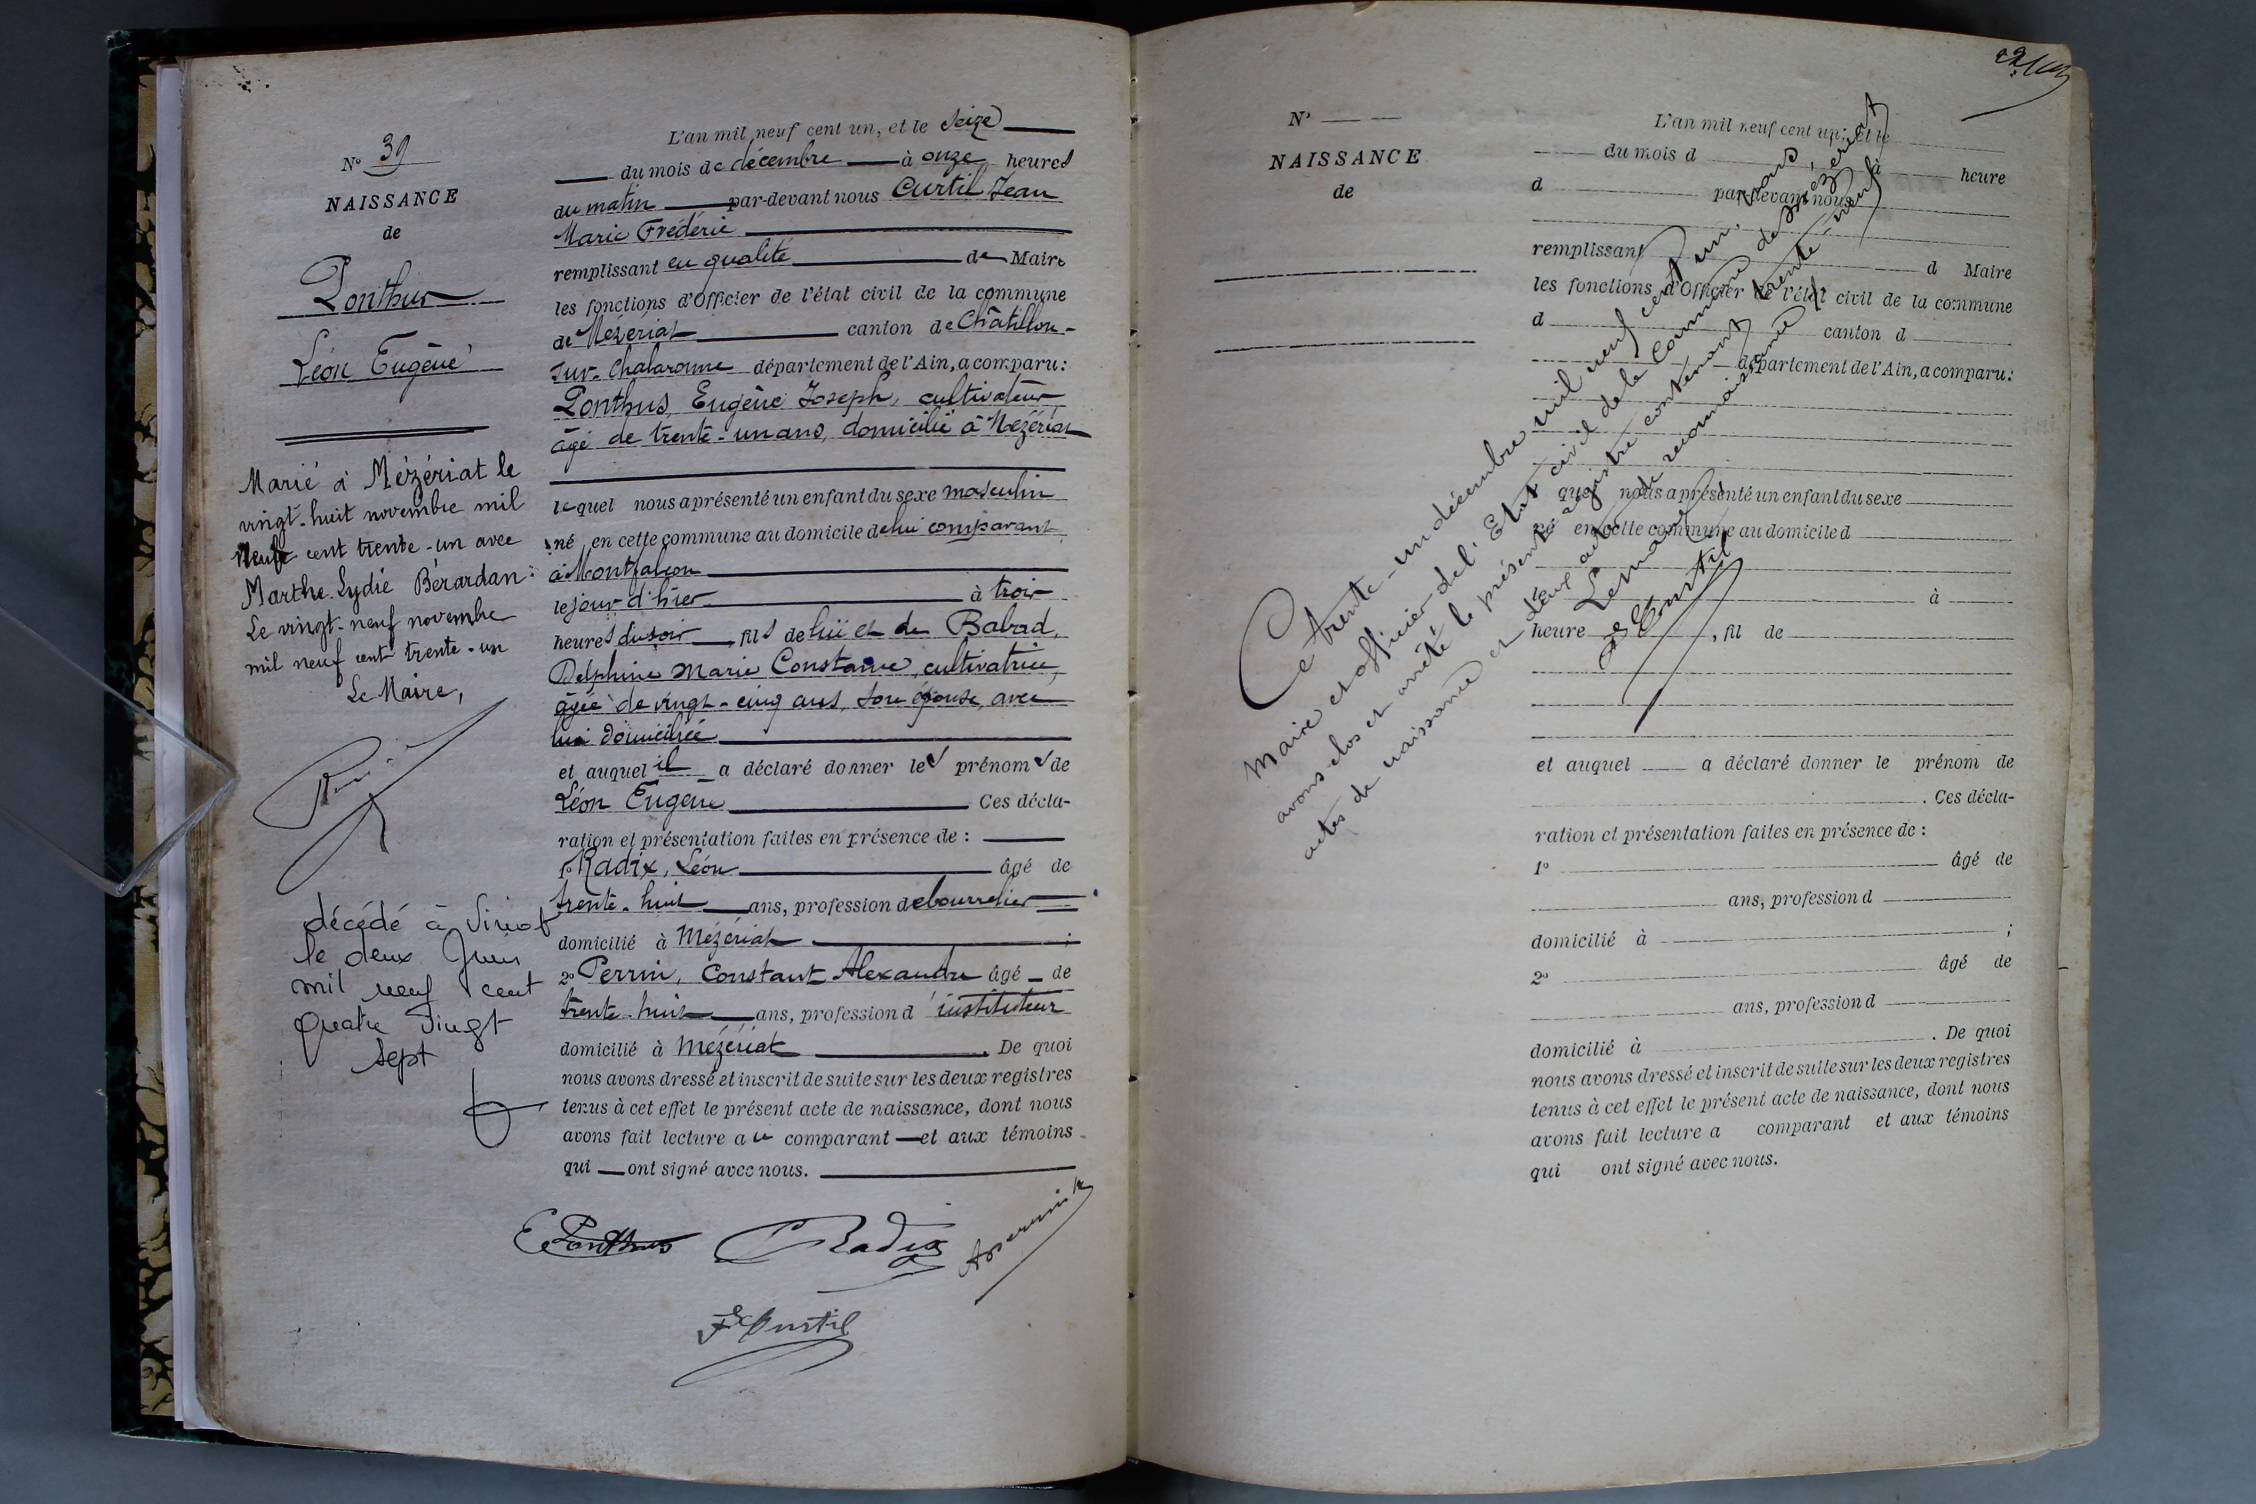 N° 39
NAISSANCE
de
Ponthus
Léon Eugène
Marié à Mézériat le
vingt-huit novembre mil
neuf cent trente-un avec
Marthe Lydie Bérardan.
Le vingt-neuf novembre
mil neuf cent trente-un
Le Maire,
décédé à Viriat
le deux Juin
mil neuf cent
quatre vingt
sept
L'an mil neuf cent un, et le Seize
du mois de décembre à onze heures
du matin par-devant nous Curtil Jean
Marie Frédéric
remplissant en qualité de Maire
les fonctions d'Officier de l'état civil de la commune
de Mézériat canton de Châtillon-
sur-Chalaronne département de l'Ain, a comparu :
Ponthus, Eugène Joseph, cultivateur
âgé de trente-un ans, domicilié à Mézériat
lequel nous a présenté un enfant du sexe masculin
né en cette commune au domicile de lui comparant
à Montfalcon
le jour d'hier à trois
heures du soir, fils de lui et de Babad,
Delphine Marie Constance, cultivatrice,
âgée de vingt-cinq ans, son épouse, avec
lui domiciliée
et auquel il a déclaré donner les prénoms de
Léon Eugène Ces décla-
ration et présentation faites en présence de :
1° Radix, Léon âgé de
trente-huit ans, profession de bourrelier
domicilié à Mézériat ;
2° Perrin, Constant Alexandre âgé de
trente-huit ans, profession d'instituteur
domicilié à Mézériat . De quoi
nous avons dressé et inscrit de suite sur les deux registres
tenus à cet effet le présent acte de naissance, dont nous
avons fait lecture au comparant et aux témoins
qui ont signé avec nous.
E Ponthus Radix
F Curtil
N°
NAISSANCE
de
L'an mil neuf cent un, et le
du mois d à heure
d par-devant nous
remplissant d Maire
les fonctions d'Officier de l'état civil de la commune
d canton d
département de l'Ain, a comparu :
quel nous a présenté un enfant du sexe
né en cette commune au domicile d
à
heure , fil de
et auquel a déclaré donner le prénom de
. Ces décla-
ration et présentation faites en présence de :
1° âgé de
ans, profession d
domicilié à ;
2° âgé de
ans, profession d
domicilié à . De quoi
nous avons dressé et inscrit de suite sur les deux registres
tenus à cet effet le présent acte de naissance, dont nous
avons fait lecture a comparant et aux témoins
qui ont signé avec nous.
Ce trente-un décembre mil neuf cent un, nous,
Maire et officier de l'Etat civil de la commune de Mézériat
avons clos et arrêté le présent registre contenant trente-neuf
actes de naissance et deux actes de reconnaissance
Le Maire
F Curtil